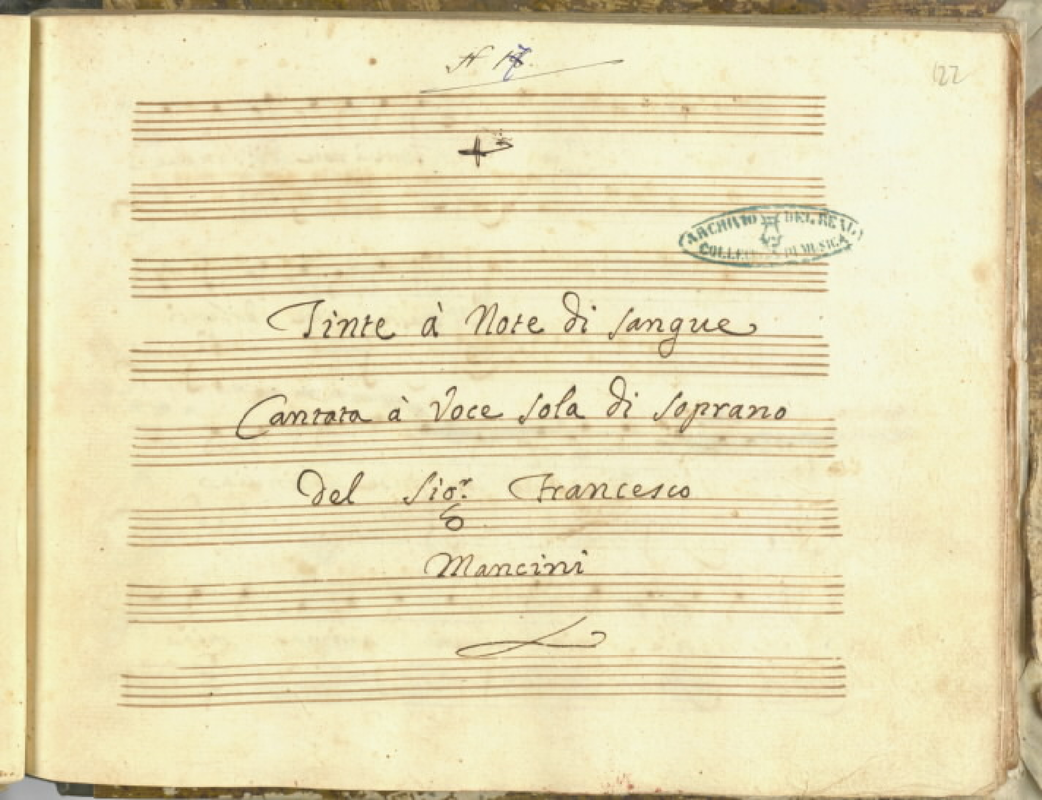 N 17
122
ARCHIVIO DEL REAL
COLLEGIO DI MUSICA
Tinte à Note di sangue
Cantata à Voce sola di Soprano
Del Sigr. Francesco
Mancini